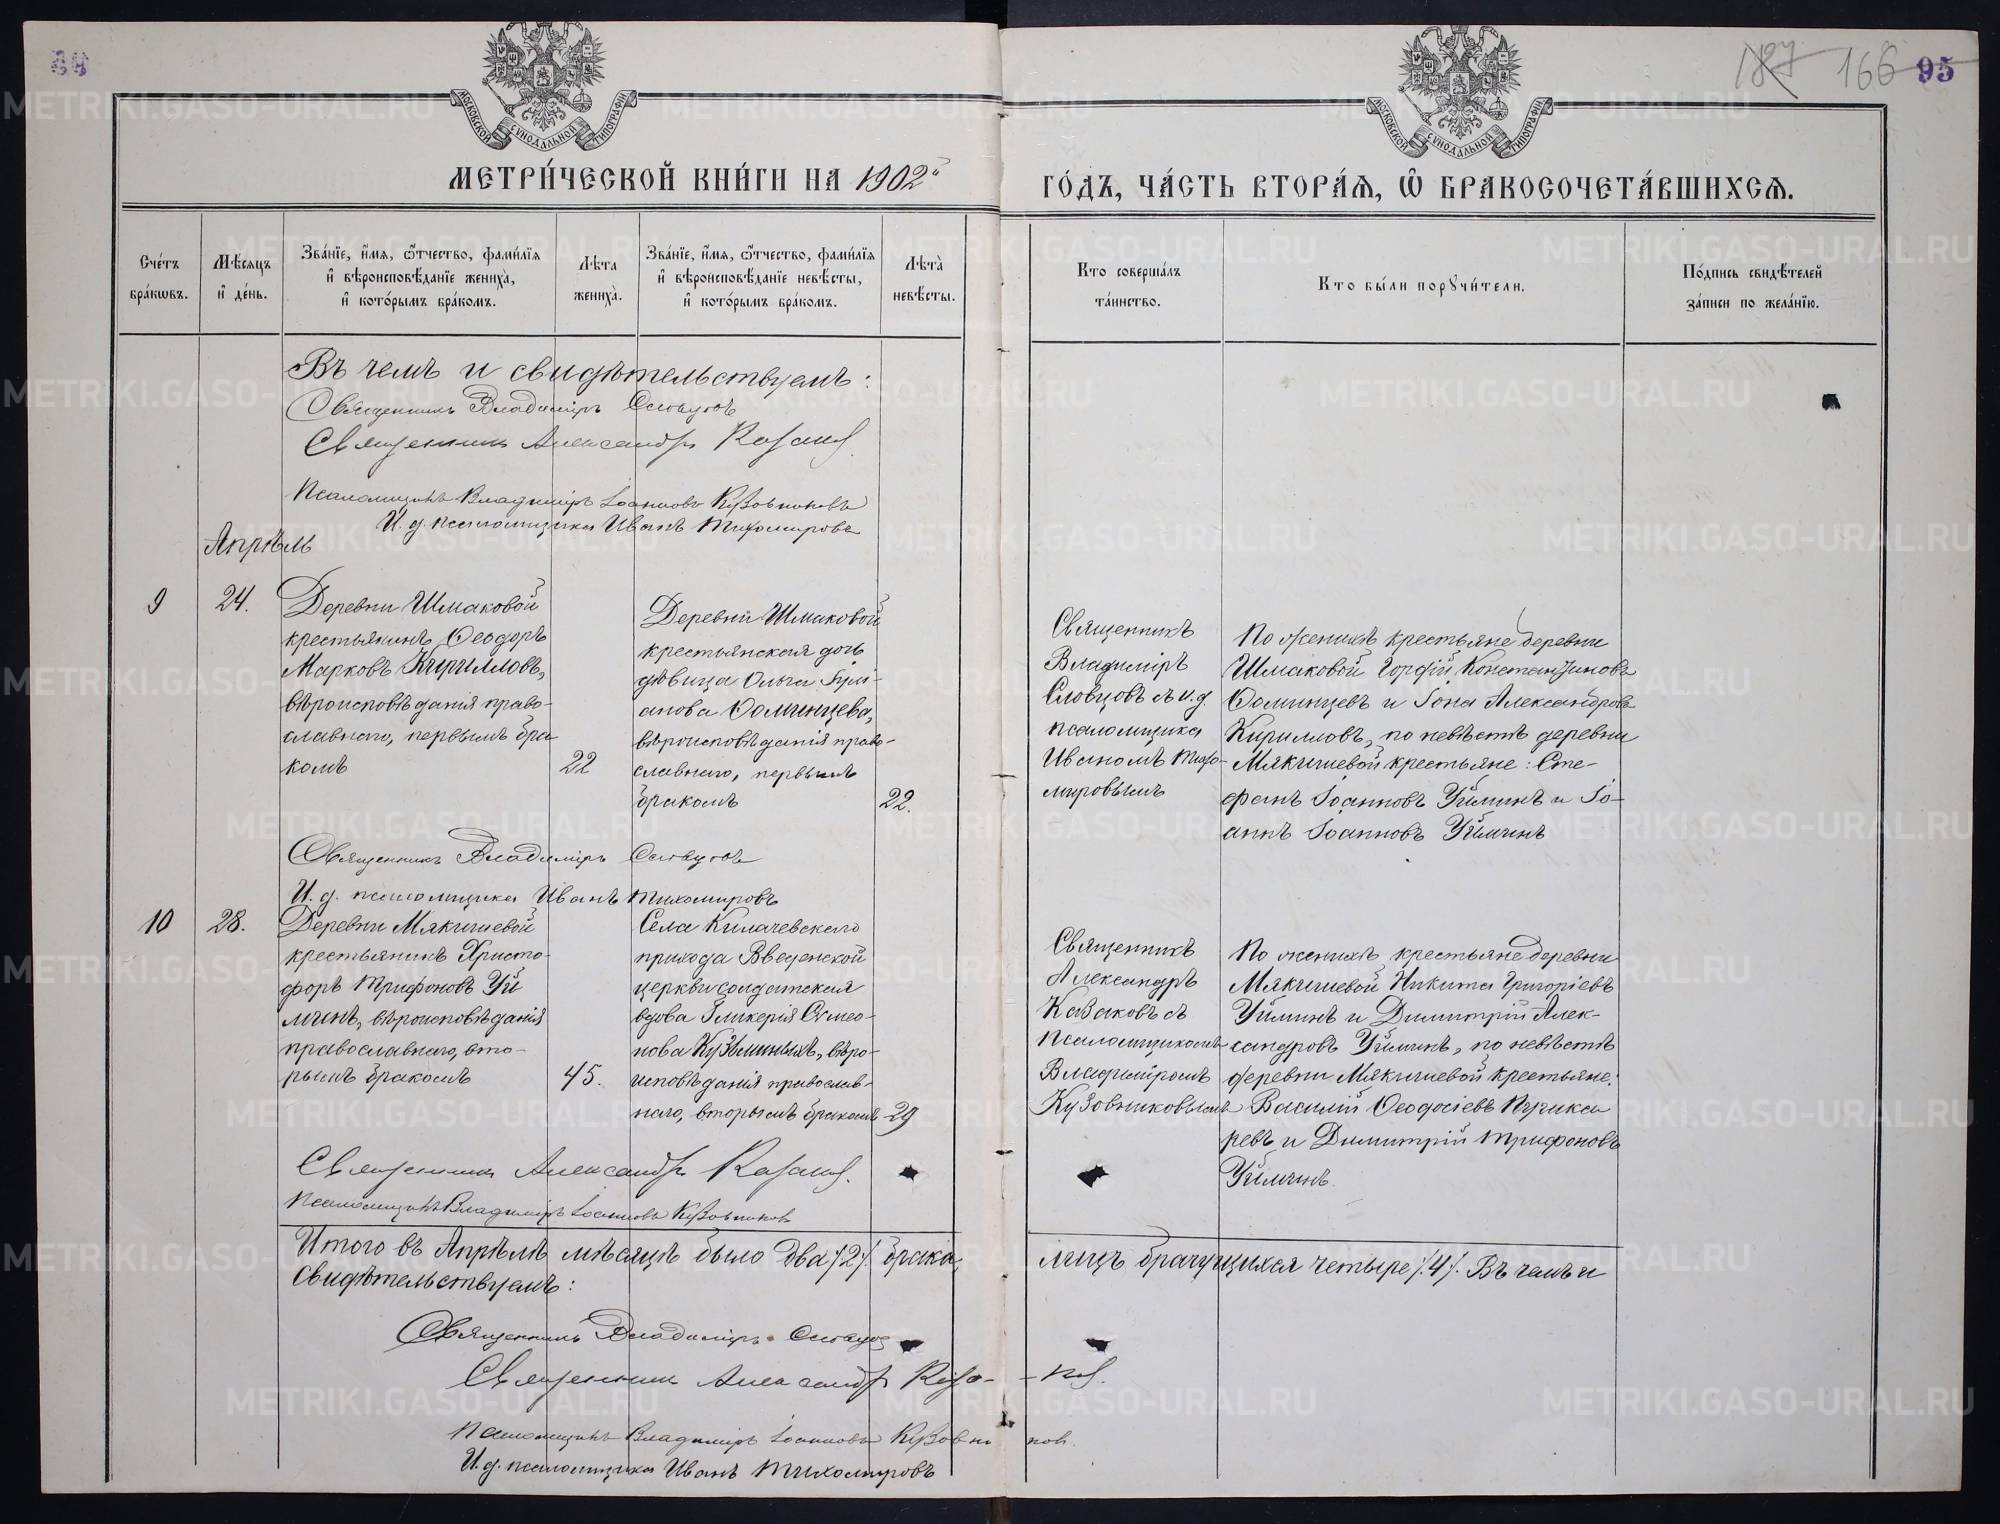 95
187 166
МОСКОВСКОЙ СУНОДАЛЬНОЙ ТИПОГРАФИИ
МОСКОВСКОЙ СУНОДАЛЬНОЙ ТИПОГРАФИИ
МЕТРИ́ЧЕСКОЙ КНИ́ГИ НА 1902й
ГО́ДЪ, ЧА́СТЬ ВТОРА́Ѧ, Ѽ БРАКОСОЧЕТА́ВШИХСѦ.
Сче́тъ бра́кѡвъ.
Мѣ́сѧцъ и҆ де́нь.
Зва́нїе, и҆́мѧ, ѻ҆́тчество, фами́лїѧ
и҆ вѣроисповѣ́данїе жениха̀,
и҆ кото́рымъ бра́комъ.
Лѣ́та жениха̀.
Зва́нїе, и҆́мѧ, ѻ҆́тчество, фами́лїѧ
и҆ вѣроисповѣ́данїе невѣ́сты,
и҆ кото́рымъ бра́комъ.
Лѣ́та невѣ́сты.
Кто соверша́лъ та́инство.
Кто бы́ли порꙋчи́тели.
По́дпись свидѣ́телей
за́писи по жела́нїю.
Въ чемъ и свидѣтельствуемъ:
Священникъ Владиміръ Словцовъ
Священникъ Александръ Казаков.
Псаломщикъ Владиміръ Іоанновъ Кузовниковъ
И. д. псаломщика Иванъ Тихомировъ
Апрѣль
9
24.
Деревни Шмаковой
крестьянинъ Ѳеодоръ
Марковъ Кирилловъ,
вѣроисповѣданія право-
славнаго, первымъ бра
комъ
22
Деревни Шмаковой
крестьянская дочь
дѣвица Ольга
Ѳоминцева,
вѣроисповѣданія право-
славнаго, первымъ
бракомъ
22.
Священникъ
Владиміръ
Словцовъ съ и. д.
псаломщика
Иваномъ Тихо-
мировымъ
По женихѣ крестьяне деревни
Шмаковой Константиновъ
Ѳоминцевъ и Іона Александровъ
Кирилловъ, по невѣстѣ деревни
Мякишевой крестьяне: Сте-
фанъ Іоанновъ Уйминъ и Іо-
аннъ Іоанновъ Уйминъ
Священникъ Владиміръ Словцовъ
И. д. псаломщика Иванъ Тихомировъ
10
28.
Деревни Мякишевой
крестьянинъ Христо-
форъ Трифоновъ Уй
минъ, вѣроисповѣданія
православнаго, вто-
рымъ бракомъ
45.
Села Килачевскаго
прихода Введенской
церкви солдатская
вдова Гликерія Симео-
нова Кузьминыхъ, вѣро-
исповѣданія православ-
наго, вторымъ бракомъ
29
Священникъ
Александръ
Казаковъ съ
псаломщикомъ
Владиміромъ
Кузовниковымъ
По женихѣ, крестьяне деревни
Мякишевой Никита Григоріевъ
Уйминъ и Димитрій Алек-
сандровъ Уйминъ, по невѣстѣ
деревни Мякишевой крестьяне:
Василій Ѳеодосіевъ Пузика
ревъ и Димитрій Трифоновъ
Уйминъ.
Священникъ Александръ Казаков.
Псаломщикъ Владиміръ Іоанновъ Кузовников
Итого въ Апрѣлѣ мѣсяцѣ было два /2/. брака, лицъ брачущихся четыре /.4/. Въ чемъ и
свидѣтельствуемъ:
Священникъ Владиміръ Словцов
Священникъ Александръ Каза-ков.
Псаломщикъ Владиміръ Іоанновъ Кузовников.
И. д. псаломщика Иванъ Тихомировъ
METRIKI.GASO-URAL.RU